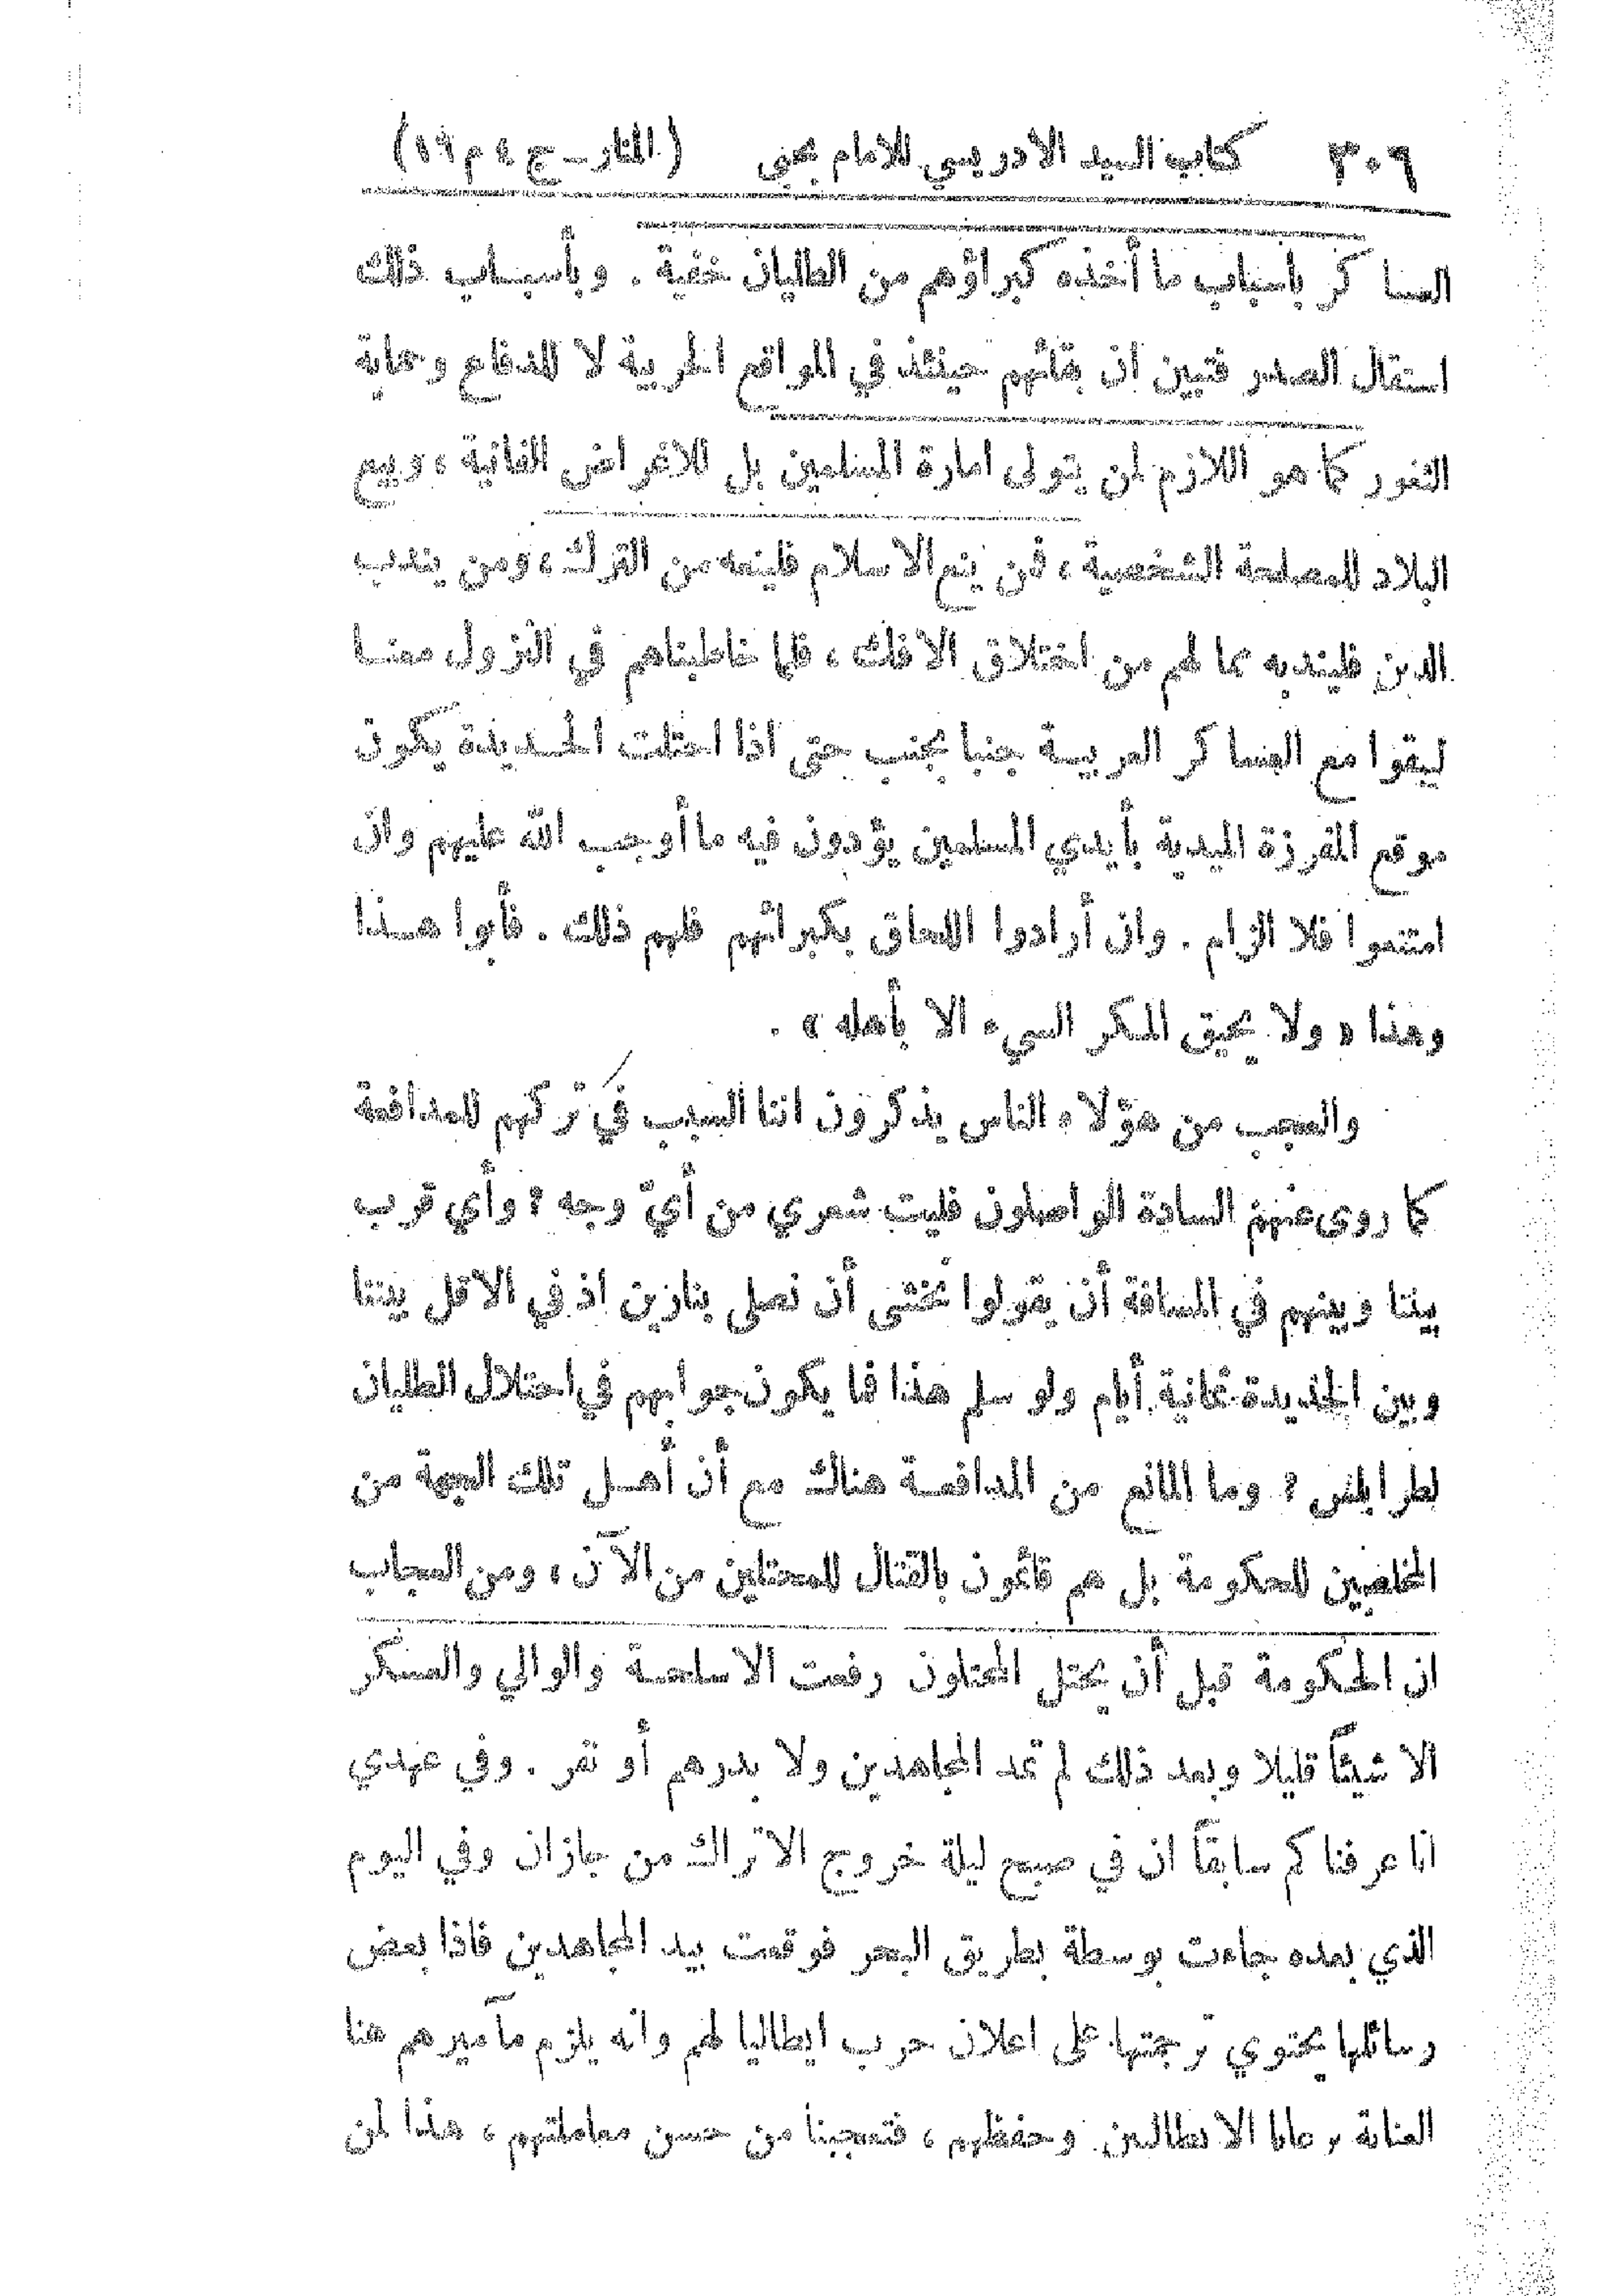 ٣٠٦ كتاب السيد الادريسي للامام يحيى (المنار ــ ج ٤ م ١٦)
العسا كر بأسباب ما أخذه كبراؤهم من الطليان خفية . وبأسبـاب ذلك
استقال الصدر فتبين ان بقائهم حينئذ في المواقع الحربية لا للدفاع وحماية
الثغور كما هو اللازم لمن يتولى امارة المسلمين بل للاغراض الفانية ، وبيع
البلاد للمصلحة الشخصية ، فمن ينع الاسلام فلينعه من الترك ، ومن يندب
الدين فليندبه بما لهم من اختلاق الافك ، فلما خاطبناهم في النزول معنـا
ليبقوا مع العسا كر العربيـة جنبا بجنب حتى اذا احتلت الحـديدة يكون
موقع المفرزة الميدية بأيدي المسلمين يؤدون فيه ما أوجب الله عليهم وان
امتنعوا فلا الزام . وان أرادوا اللحاق بكبرائهم فلهم ذلك . فأبوا هـذا
وهذا « ولا يحيق المكر السيء الا بأهله » .
والعجب من هؤلاء الناس يذكرون اننا السبب في تركهم للمدافعة
كما روى عنهم السادة الواصلون فليت شعري من أيّ وجه ؟ وأي قرب
بيننا وبينهم في المسافة أن يقولوا نخشى أن نصلى بنارين اذ في الاقل بيننا
وبين الحديدة ثمانية أيام ولو سلم هذا فما يكون جوابهم في احتلال الطليان
لطرابلس ؟ وما المانع من المدافعـة هناك مع أن أهـل تلك الجهة من
المخلصين للحكومة بل هم قائمون بالقتال للمحتلين من الآن ، ومن العجاب
ان الحكومة قبل أن يحتل المحتلون رفعت الاسلحـة والوالي والعسكر
الا شيئاً قليلا وبعد ذلك لم تمد المجاهدين ولا بدرهم أو نفر . وفي عهدي
انا عرفناكم سابقاً ان في صبح ليلة خروج الاتراك من جازان وفي اليوم
الذي بعده جاءت بوسطة بطريق البحر فوقعت بيد المجاهدين فاذا بعض
رسائلها يحتوي ترجمتها على اعلان حرب ايطاليا لهم وانه يلزم مآميرهم هنا
العناية برعايا الايطاليين وحفظهم ، فتعجبنا من حسن معاملتهم ، هذا لمن